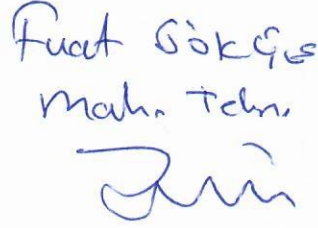 Fuat Gökçe
Mak. Tekn.